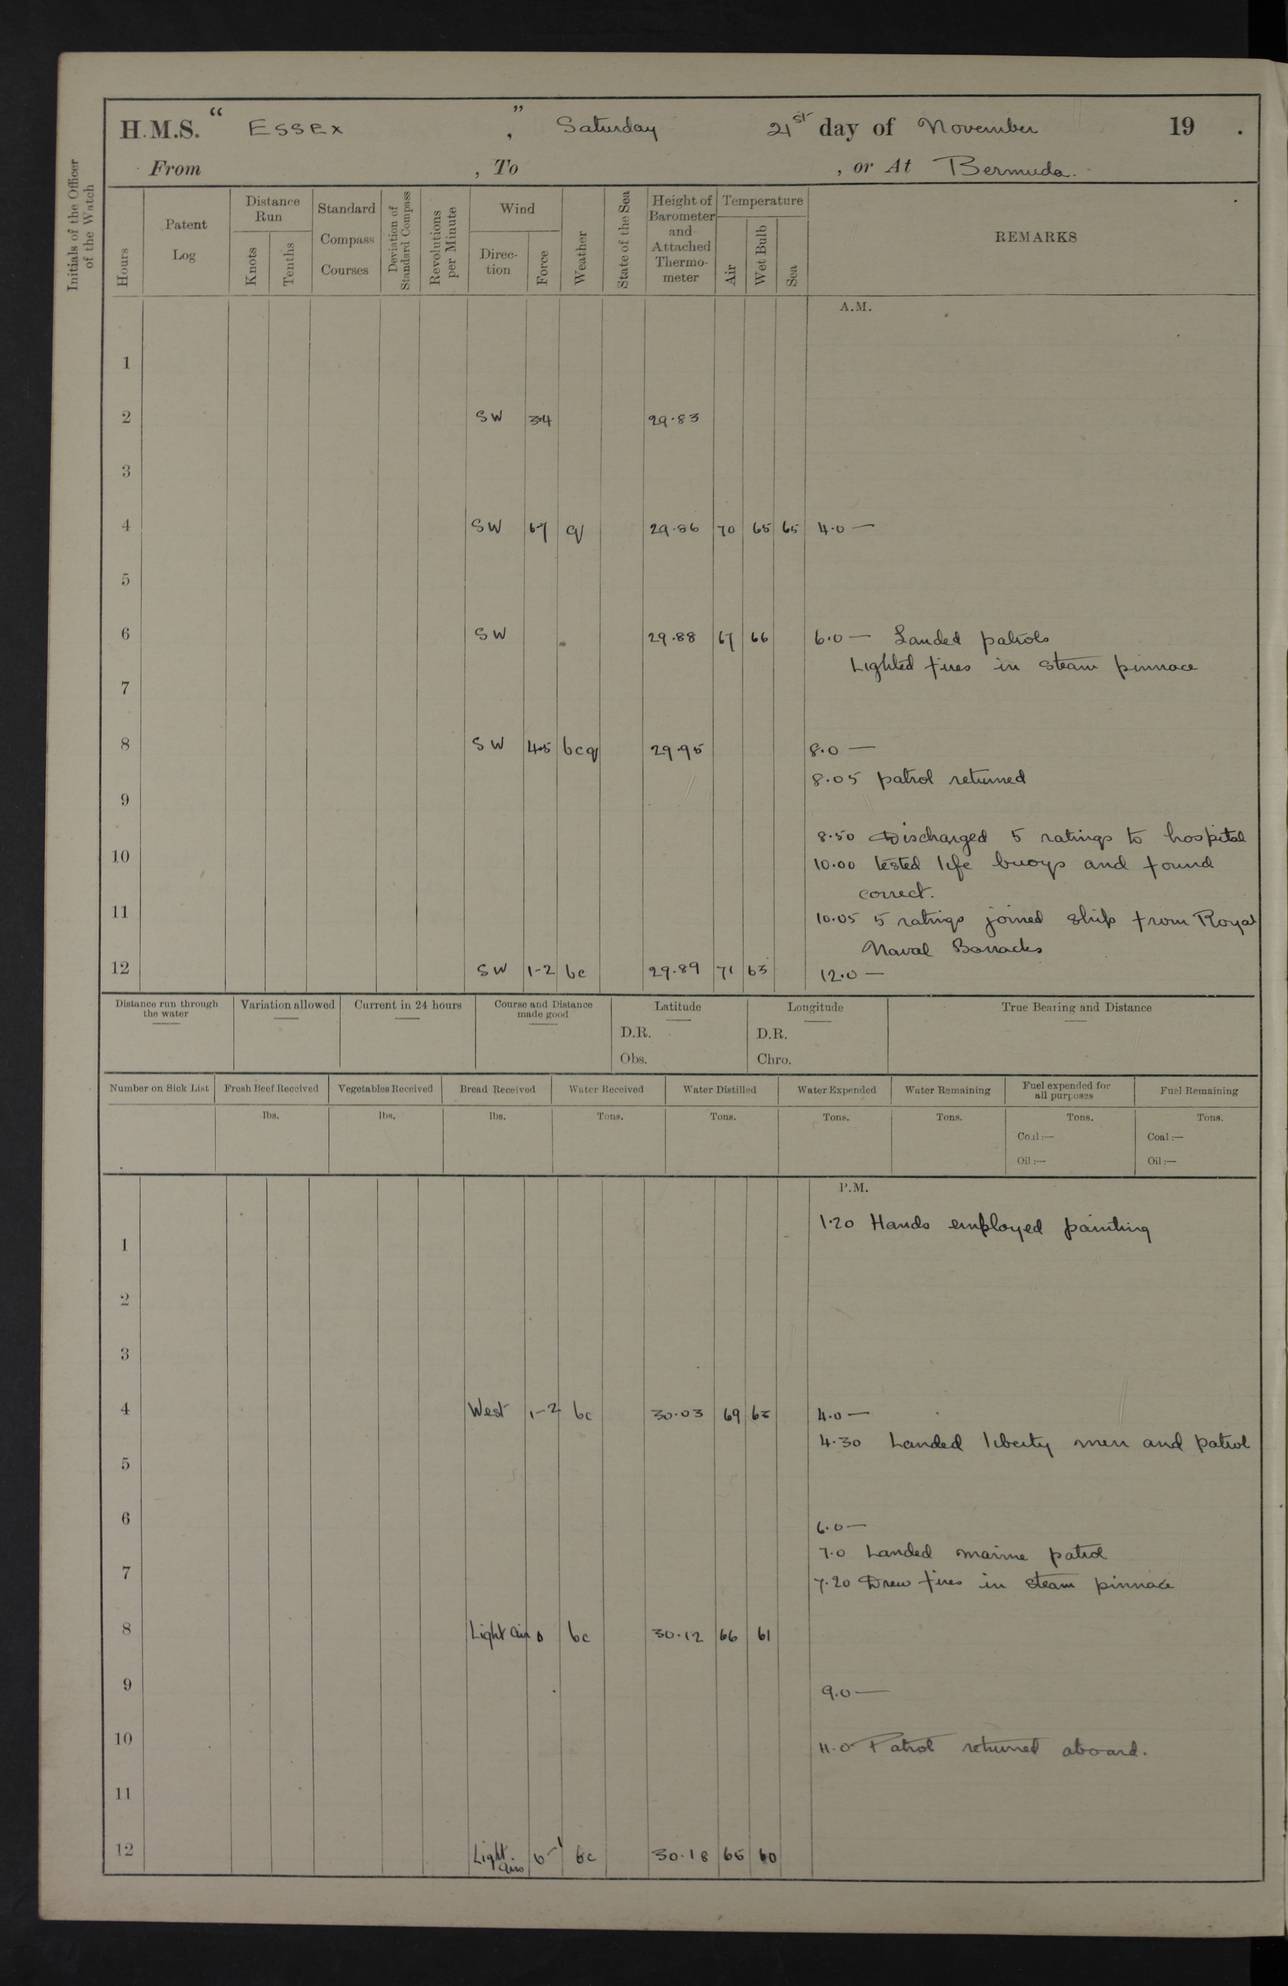 H.M.S. " Essex ", Saturday 21st day of November 19 .
From , To , or At Bermuda.
Initials of the Officer of the Watch
Hours
Patent Log
Distance Run
Knots
Tenths
Standard Compass Courses
Deviation of Standard Compass
Revolutions per Minute
Wind
Direction
Force
Weather
State of the Sea
Height of Barometer and Attached Thermometer
Temperature
Air
Wet Bulb
Sea
REMARKS
A.M.
1
2 SW 3.4 29.83
3
4 SW 6.7 q 29.86 70 65 65 4.0 —
5
6 SW 29.88 67 66 6.0 — Landed patrols
Lighted fires in steam pinnace
7
8 SW 4.5 bcq 29.95 8.0 —
8.05 patrol returned
9
8.50 Discharged 5 ratings to hospital
10 10.00 tested life buoys and found
correct.
11 10.05 5 ratings joined ship from Royal
Naval Barracks
12 SW 1-2 bc 29.89 71 63 12.0 —
Distance run through the water
Variation allowed
Current in 24 hours
Course and Distance made good
Latitude
D.R.
Obs.
Longitude
D.R.
Chro.
True Bearing and Distance
Number on Sick List
Fresh Beef Received
Vegetables Received
Bread Received
Water Received
Water Distilled
Water Expended
Water Remaining
Fuel expended for all purposes
Fuel Remaining
lbs. lbs. lbs. Tons. Tons. Tons. Tons. Tons. Tons.
Coal :— Coal :—
Oil :— Oil :—
P.M.
1.20 Hands employed painting
1
2
3
4 West 1-2 bc 30.03 69 63 4.0 —
4.30 Landed liberty men and patrol
5
6 6.0 —
7.0 Landed marine patrol
7 7.20 Drew fires in steam pinnace
8 Light air 0 bc 30.12 66 61
9 9.0 —
10 11.0 Patrol returned aboard.
11
12 Light airs 0-1 bc 30.18 65 60